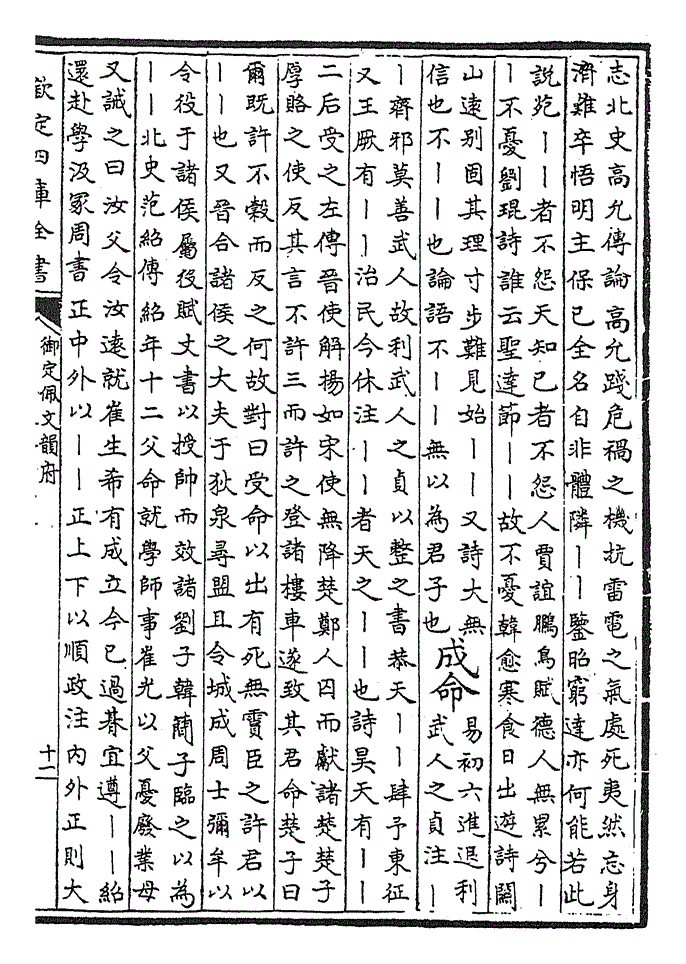 志北史高允傳論 高允踐危禍之機抗雷電之氣處死夷然忘身
濟難卒悟明主保已全名自非體隣丨丨鑒昭窮達亦何能若此
説苑丨丨者不怨天知已者不怨人賈誼鵩鳥賦德人無累兮丨
丨不憂劉琨詩誰云聖達節丨丨故不憂韓愈寒食日出遊詩闗
山遠别固其理寸步難見始丨丨又詩大無
信也不丨丨也論語不丨丨無以為君子也
成命
易初六進退利
武人之貞注丨
丨齊邪莫善武人故利武人之貞以整之書恭天丨丨肆予東征
又王厥有丨丨治民今休注丨丨者天之丨丨也詩昊天有丨丨
二后受之左傳晉使解揚如宋使無降楚鄭人囚而獻諸楚楚子
厚賂之使反其言不許三而許之登諸樓車遂致其君命楚子曰
爾既許不穀而反之何故對曰受命以出有死無霣臣之許君以
丨丨也又晉合諸侯之大夫于狄泉尋盟且令城成周士彌牟以
令役于諸侯屬役賦丈書以授帥而效諸劉子韓簡子臨之以為
丨丨北史范紹傳紹年十二父命就學師事崔光以父憂廢業母
又誡之曰汝父令汝遠就崔生希有成立今已過朞宜遵丨丨紹
還赴學汲冢周書 正中外以丨丨正上下以順政注内外正則大
欽定四庫全書
御定佩文韻府
十二